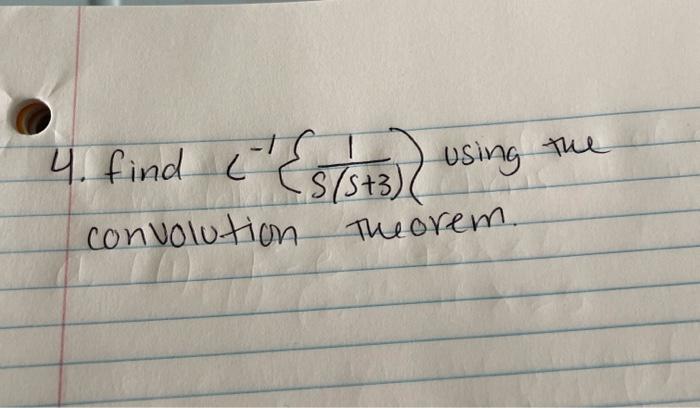 4. find L⁻¹{1/(S(S+3))} using the
convolution Theorem.